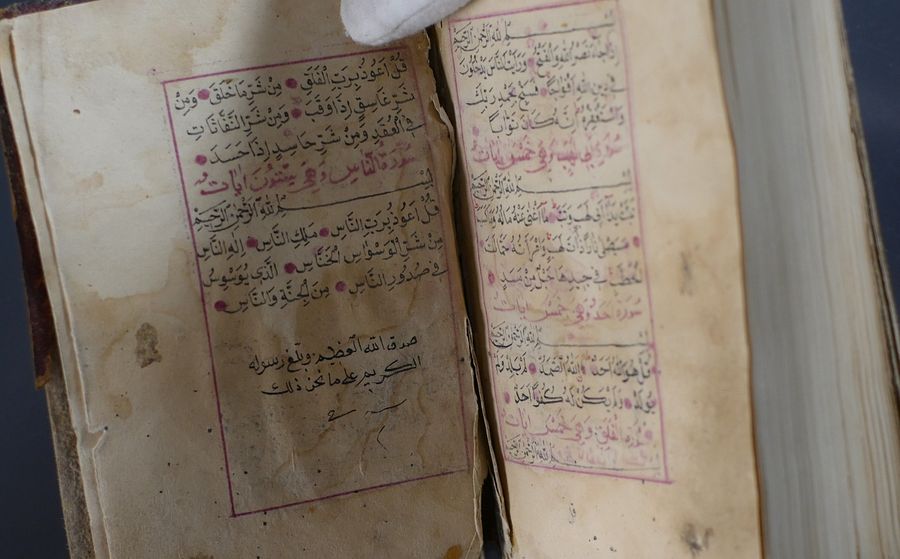 بسم الله الرحمن الرحيم
اذا جاء نصر الله والفتح ورايت الناس يدخلون
في دين الله افواجا فسبح بحمد ربك
واستغفره انه كان توابا
سورة ابي لهب وهي خمس ايات
بسم الله الرحمن الرحيم
تبت يدا ابي لهب وتب ما اغنى عنه ماله وما كسب
سيصلى نارا ذات لهب وامراته حمالة
الحطب في جيدها حبل من مسد
سورة احد وهي خمس ايات
بسم الله الرحمن الرحيم
قل هو الله احد الله الصمد لم يلد ولم
يولد ولم يكن له كفوا احد
سورة الفلق وهي خمس ايات
بسم الله الرحمن الرحيم
قُلْ اَعُوذُ بِرَبِّ الْفَلَقِ مِنْ شَرِّ مَا خَلَقَ وَمِنْ
شَرِّ غَاسِقٍ اِذَا وَقَبَ وَمِنْ شَرِّ النَّفَّاثَاتِ
فِي الْعُقَدِ وَمِنْ شَرِّ حَاسِدٍ اِذَا حَسَدَ
سُورَةُ النَّاسِ وَهِيَ ايات
بسم الله الرحمن الرحيم
قُلْ اَعُوذُ بِرَبِّ النَّاسِ مَلِكِ النَّاسِ اِلهِ النَّاسِ
مِنْ شَرِّ الْوَسْوَاسِ الْخَنَّاسِ الَّذِي يُوَسْوِسُ
فِي صُدُورِ النَّاسِ مِنَ الْجِنَّةِ وَالنَّاسِ
صدق الله العظيم وبلغ رسوله
الكريم على ما نحن ذلك